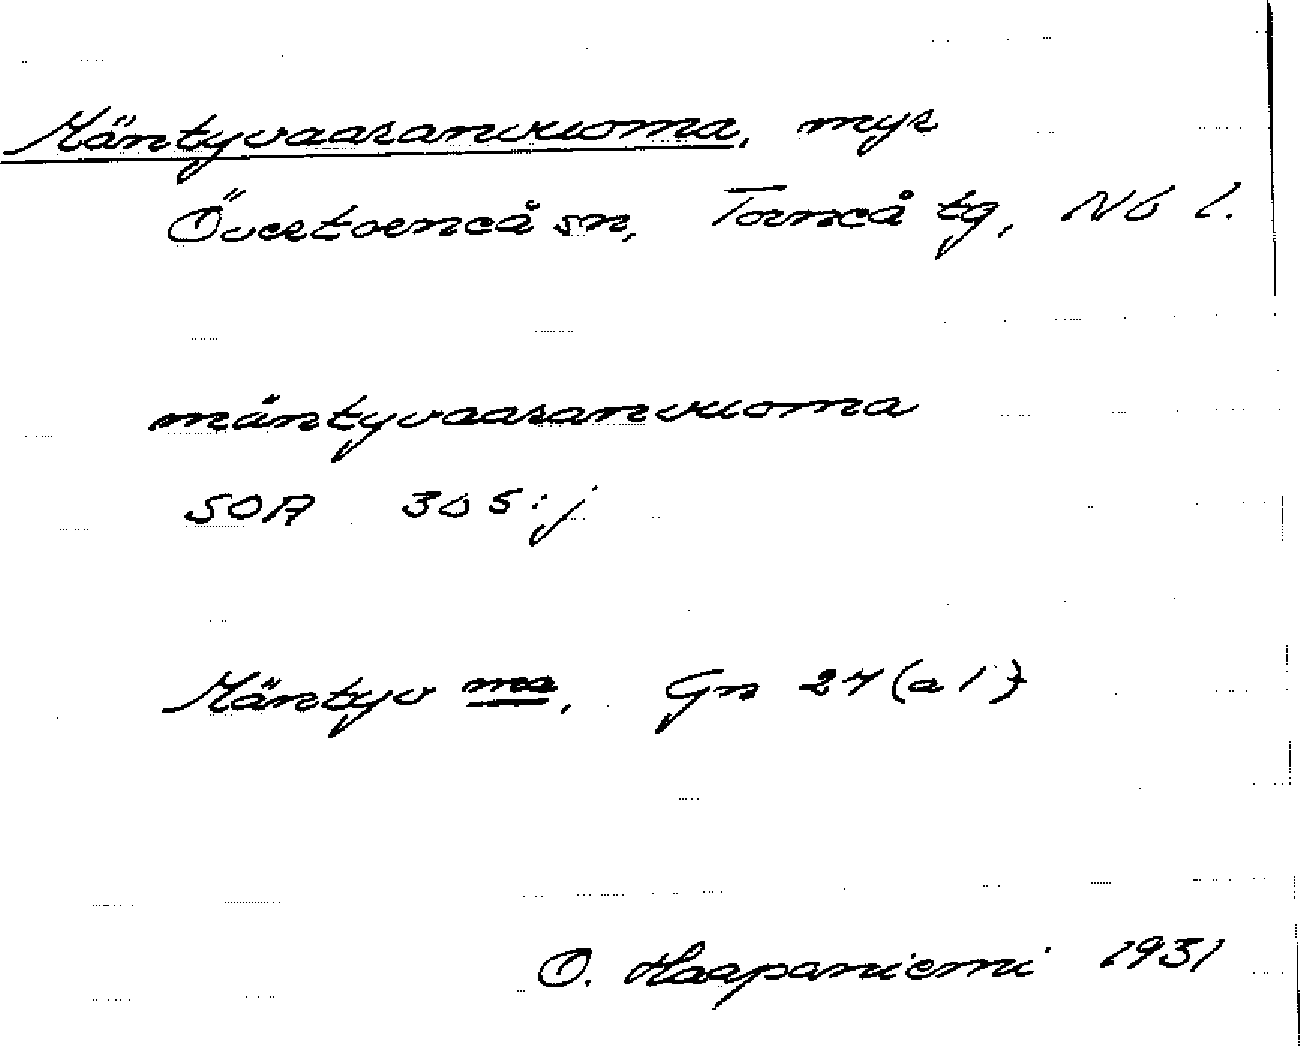 Mäntyvaaranvuoma, myr
Övertorneå sn, Torneå tg, Nb l.
mäntyvaaranvuoma
SOA 305:j
Mäntyv ma, Gn 24 (a 1)
O. Haapaniemi 1931